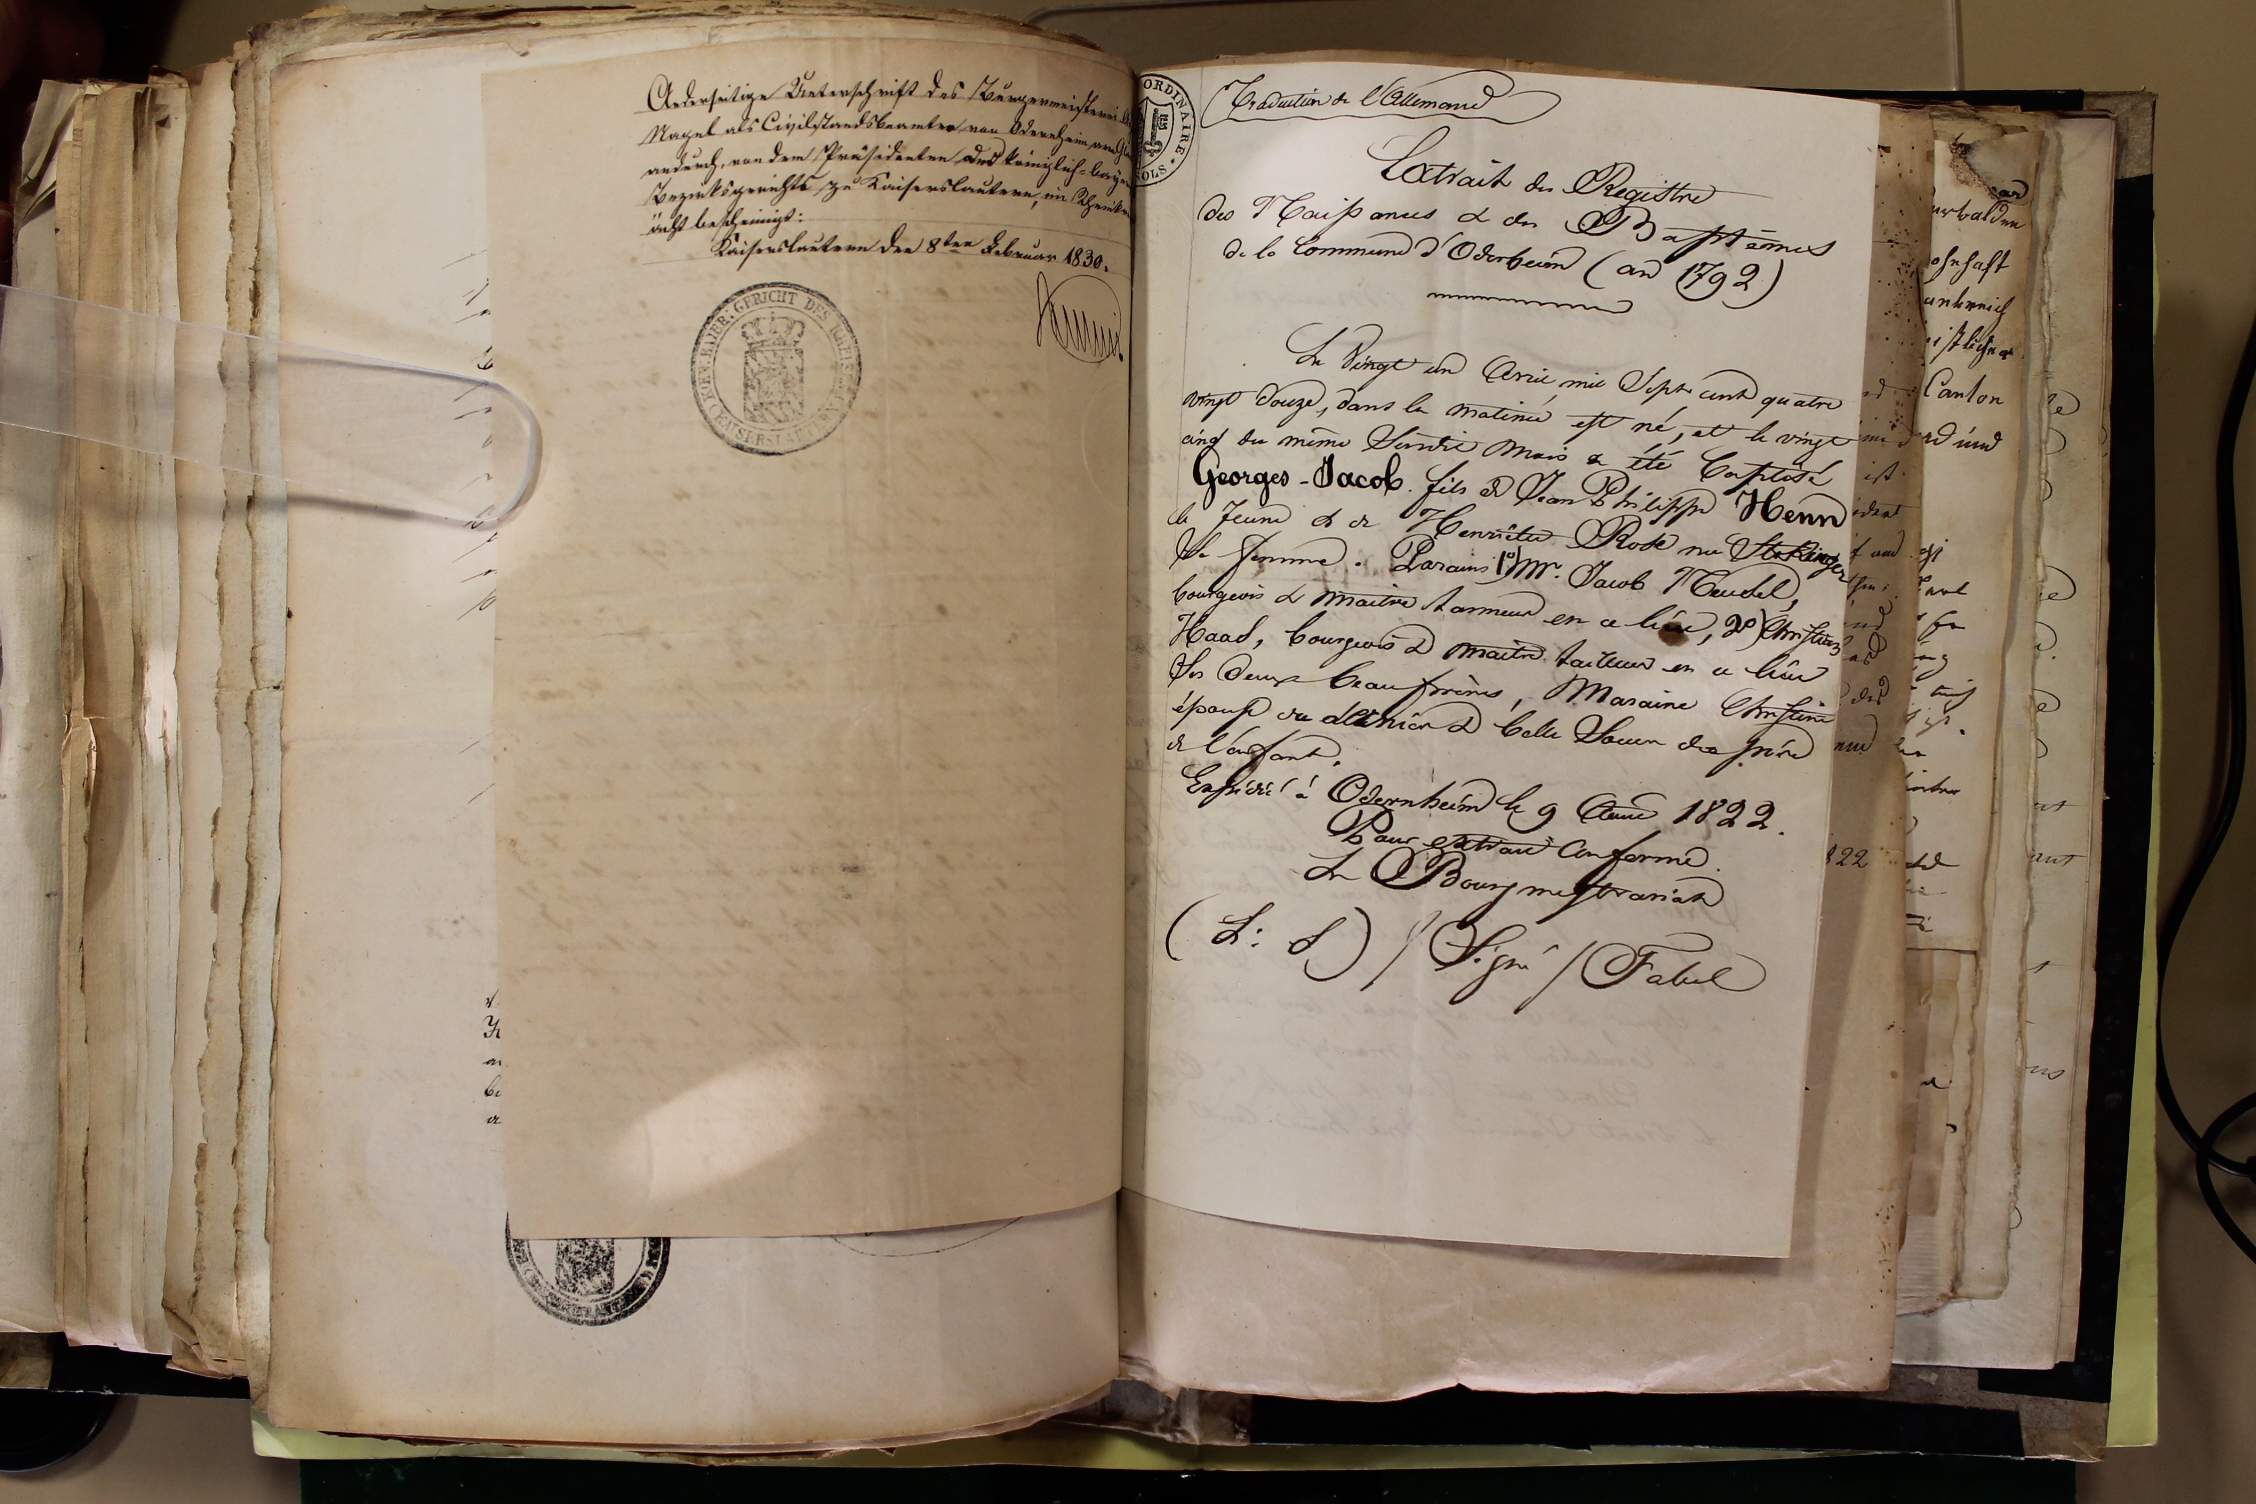 Anderseitige Unterschrift des Bürgermeisters
Nagel als Civilstandsbeamter von Odernheim am
andurch, von dem Präsidenten des königlich-bayer
Bezirksgerichts zu Kaiserslautern, im Rheinkr
ächt bescheinigt:
Kaiserslautern den 8ten Februar 1830.
KOEN. BAIER: GERICHT DES KREISES KAISERSLAUTERN
ORDINAIRE
SOLS
Traduction de l'Allemand
Extrait du Registre
des Naissances & des Baptêmes
de la Commune d'Oderheim (an 1792)
Le Vingt un Avril mil Sept cent quatre
vingt douze, dans la matinée est né, et le vingt
cinq du même Susdit mois a été baptisé
Georges-Jacob. fils de Jean Philippe Henn
le Jeune & de Henriette Rose née
Sa femme. Parains 1º) Mr. Jacob
bourgeois & maitre tanneur en ce lieu, 2º) Christian
Haas, bourgeois & maitre tailleur en ce lieu
Ses deux beaufrères, Maraine Christine
épouse du dernier & belle Soeur du père
de l'enfant.
Expédié à Odernheim le 9 1822.
Pour extrait Conforme.
Le Bourgmestrariat
(L: S) / Signé / Fabel
Canton
822